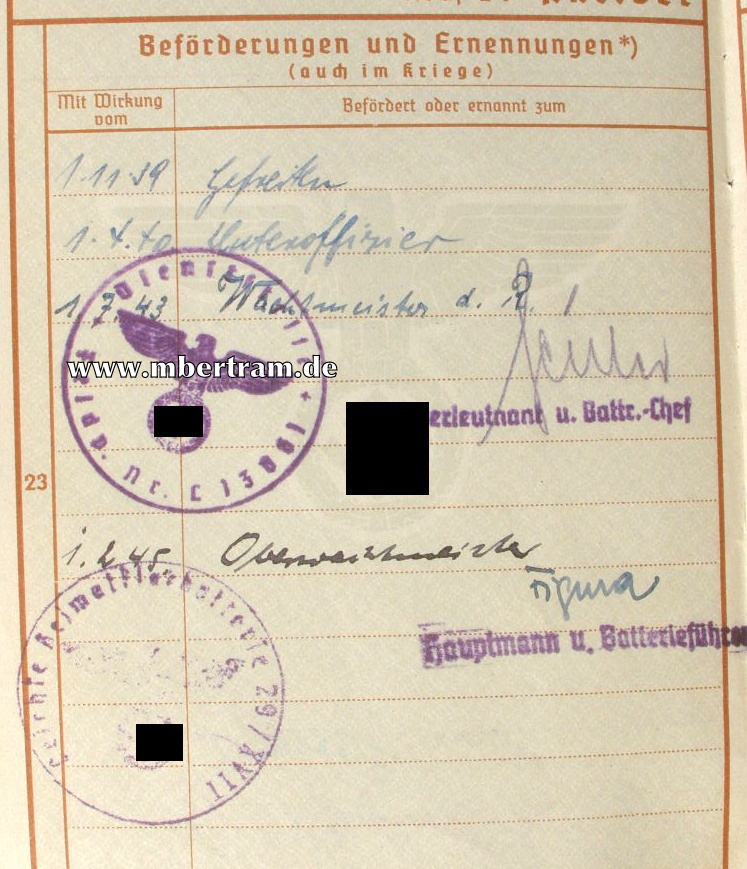 Beförderungen und Ernennungen*)
(auch im Kriege)
Mit Wirkung vom
Befördert oder ernannt zum
1.11.39 Gefreiten
1.4.40 Unteroffizier
1.7.43 Wachtmeister d. R.
Dienststelle
Feldp. Nr. L 13801
www.mbertram.de
erleutnant u. Battr.-Chef
23
1.2.45. Oberwachtmeister
Figura
Hauptmann u. Batterieführer
Leichte Heimatflakbatterie 29/XVII